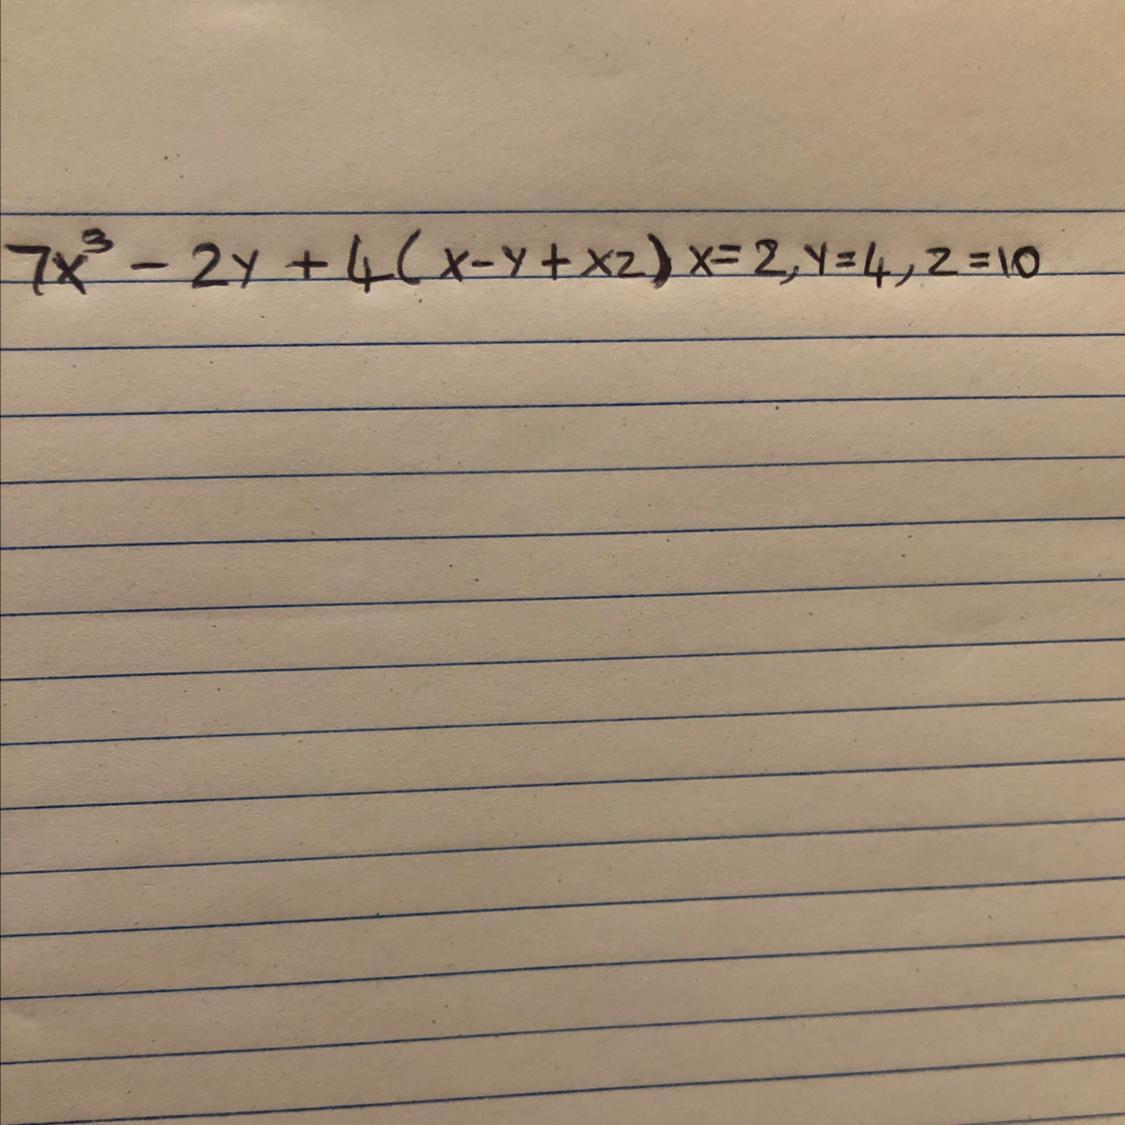 7x³ - 2y + 4(x-y+xz) x=2, y=4, z=10